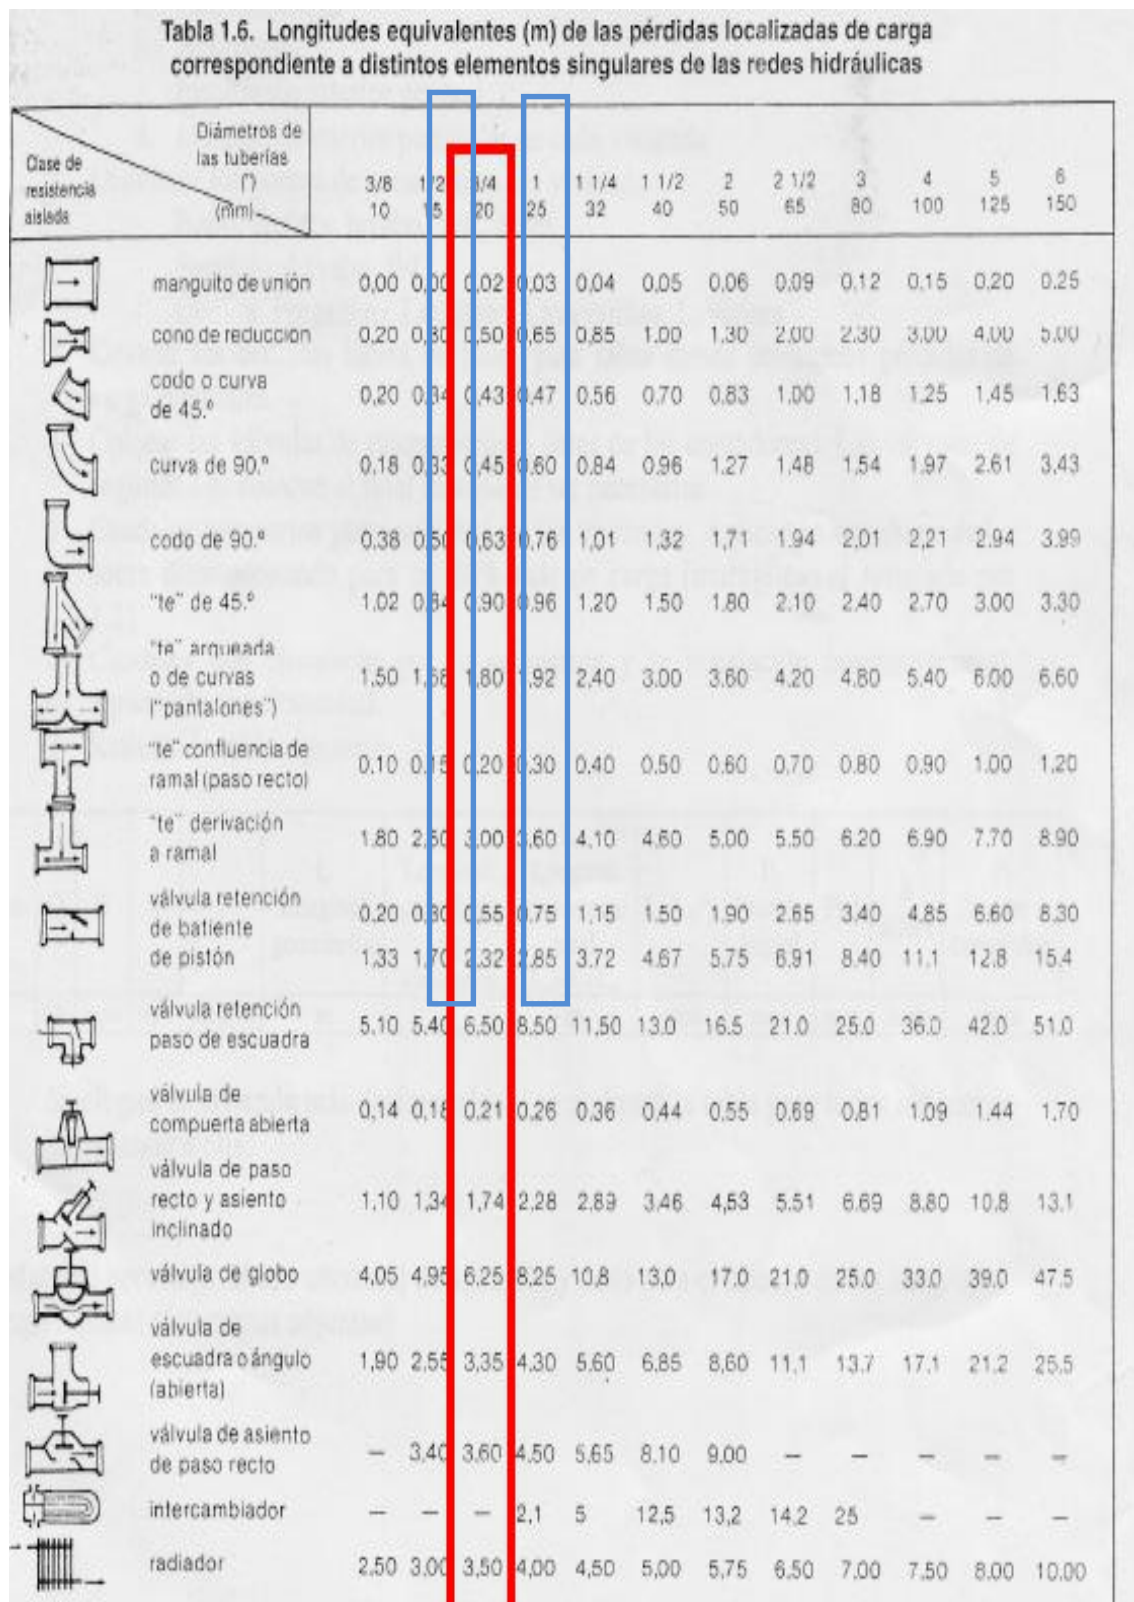 Tabla 1.6. Longitudes equivalentes (m) de las pérdidas localizadas de carga
correspondiente a distintos elementos singulares de las redes hidráulicas
Clase de
resistencia
aislada
Diámetros de
las tuberías
(")
(mm)
3/8 1/2 3/4 1 1 1/4 1 1/2 2 2 1/2 3 4 5 6
10 15 20 25 32 40 50 65 80 100 125 150
manguito de unión 0,00 0,00 0,02 0,03 0,04 0,05 0,06 0,09 0,12 0,15 0,20 0,25
cono de reducción 0,20 0,30 0,50 0,65 0,85 1,00 1,30 2,00 2,30 3,00 4,00 5,00
codo o curva
de 45.º 0,20 0,34 0,43 0,47 0,56 0,70 0,83 1,00 1,18 1,25 1,45 1,63
curva de 90.º 0,18 0,33 0,45 0,60 0,84 0,96 1,27 1,48 1,54 1,97 2,61 3,43
codo de 90.º 0,38 0,50 0,63 0,76 1,01 1,32 1,71 1,94 2,01 2,21 2,94 3,99
"te" de 45.º 1,02 0,84 0,90 0,96 1,20 1,50 1,80 2,10 2,40 2,70 3,00 3,30
"te" arqueada
o de curvas 1,50 1,68 1,80 1,92 2,40 3,00 3,60 4,20 4,80 5,40 6,00 6,60
("pantalones")
"te" confluencia de
ramal (paso recto) 0,10 0,15 0,20 0,30 0,40 0,50 0,60 0,70 0,80 0,90 1,00 1,20
"te" derivación
a ramal 1,80 2,50 3,00 3,60 4,10 4,60 5,00 5,50 6,20 6,90 7,70 8,90
válvula retención
de batiente 0,20 0,30 0,55 0,75 1,15 1,50 1,90 2,65 3,40 4,85 6,60 8,30
de pistón 1,33 1,70 2,32 2,85 3,72 4,67 5,75 6,91 8,40 11,1 12,8 15,4
válvula retención
paso de escuadra 5,10 5,40 6,50 8,50 11,50 13,0 16,5 21,0 25,0 36,0 42,0 51,0
válvula de
compuerta abierta 0,14 0,18 0,21 0,26 0,36 0,44 0,55 0,69 0,81 1,09 1,44 1,70
válvula de paso
recto y asiento 1,10 1,34 1,74 2,28 2,89 3,46 4,53 5,51 6,69 8,80 10,8 13,1
inclinado
válvula de globo 4,05 4,95 6,25 8,25 10,8 13,0 17,0 21,0 25,0 33,0 39,0 47,5
válvula de
escuadra o ángulo 1,90 2,55 3,35 4,30 5,60 6,85 8,60 11,1 13,7 17,1 21,2 25,5
(abierta)
válvula de asiento
de paso recto — 3,40 3,60 4,50 5,65 8,10 9,00 — — — — —
intercambiador — — — 2,1 5 12,5 13,2 14,2 25 — — —
radiador 2,50 3,00 3,50 4,00 4,50 5,00 5,75 6,50 7,00 7,50 8,00 10,00